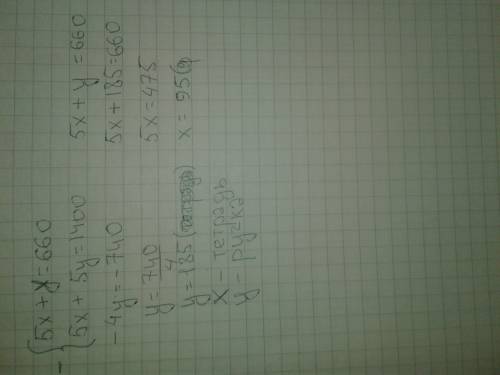 - { 5x + y = 660
5x + 5y = 1400
-4y = -740
y = 740/4
y = 185
x - тетрадь
y - ручка
5x + y = 660
5x + 185 = 660
5x = 475
x = 95